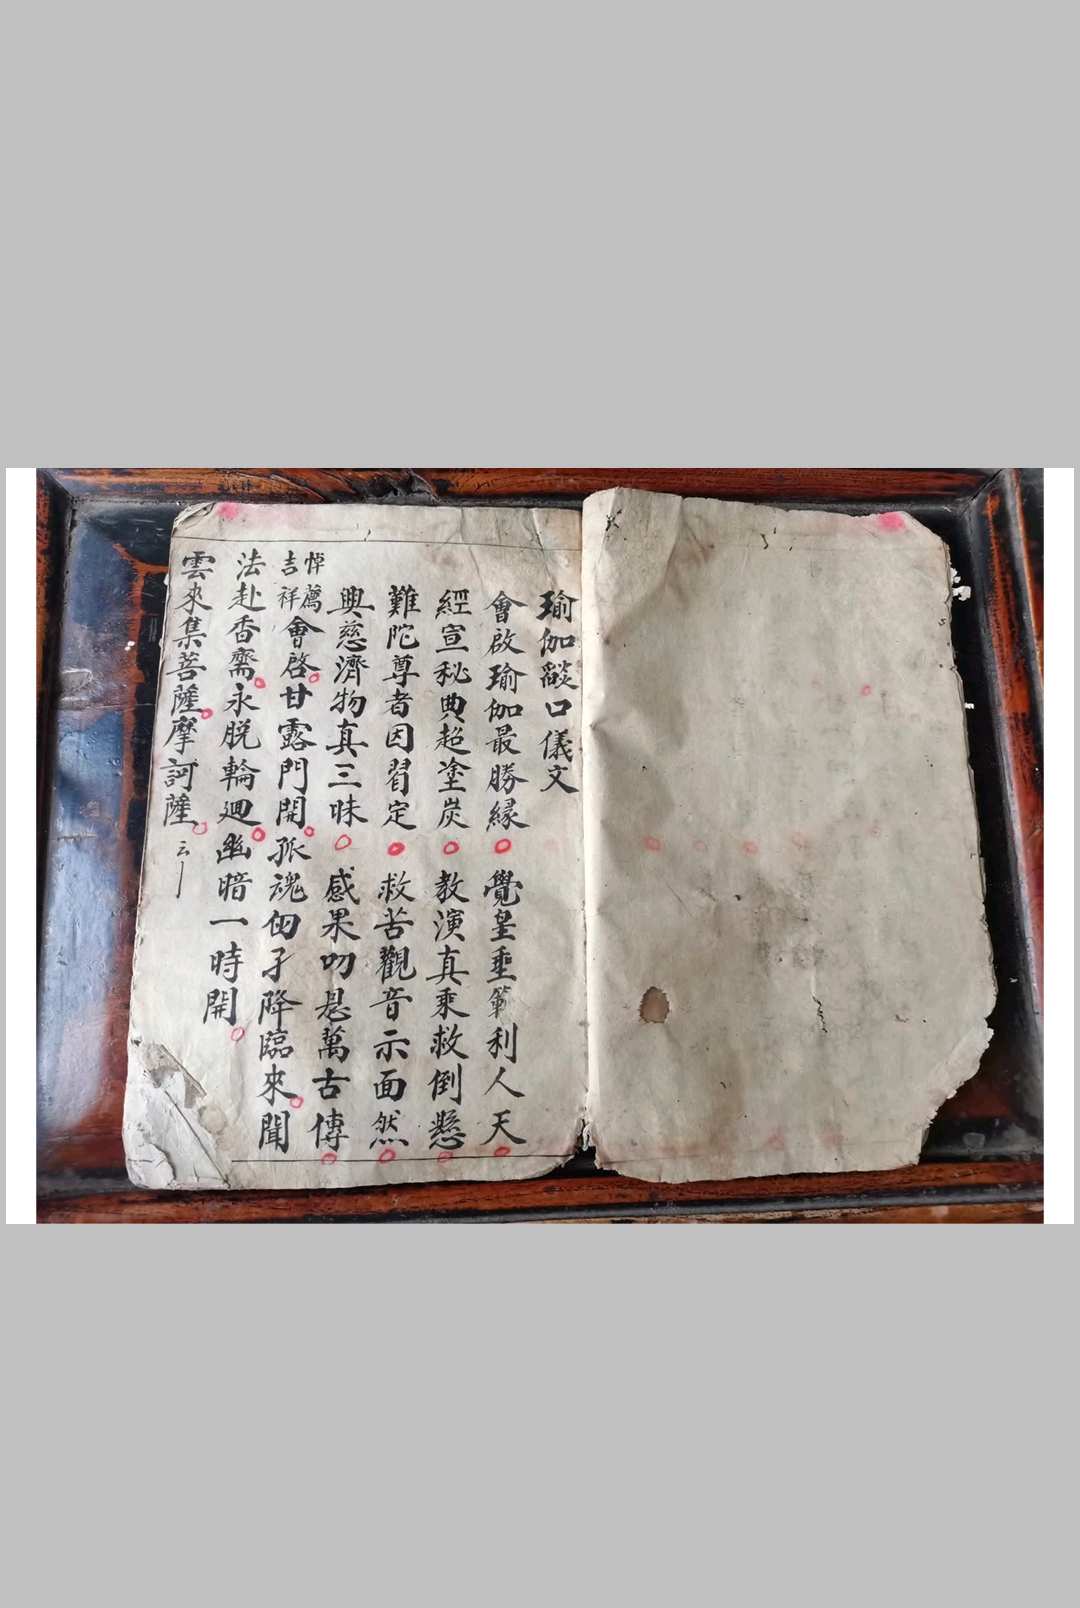 瑜伽燄口儀文
會啟瑜伽最勝緣 覺皇垂範利人天
經宣秘典超塗炭 教演真乘救倒懸
難陀尊者因習定 救苦觀音示面然
興慈濟物真三昧 感果叨恩萬古傳
悼薦
吉祥
會啓甘露門開孤魂佃孑降臨來聞
法赴香齋永脱輪迴幽暗一時開
雲來集菩薩摩訶薩云